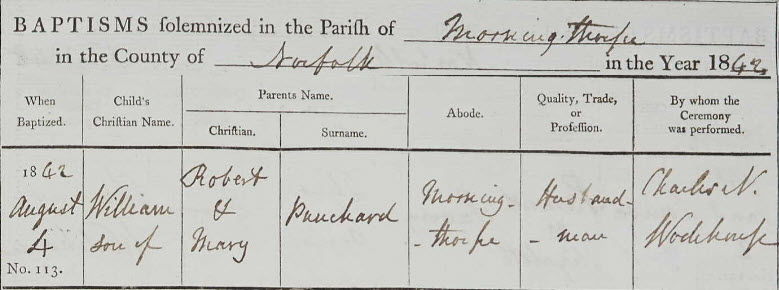 BAPTISMS ſolemnized in the Pariſh of Morning-thorpe
in the County of Norfolk in the Year 1842
When Baptized.
Child's Chriſtian Name.
Parents Name.
Chriſtian.
Surname.
Abode.
Quality, Trade, or Profeſſion.
By whom the Ceremony was performed.
1842
August
4
No. 113.
William
son of
Robert
&
Mary
Punchard
Morning-
-thorpe
Husband-
-man
Charles N.
Wodehouse